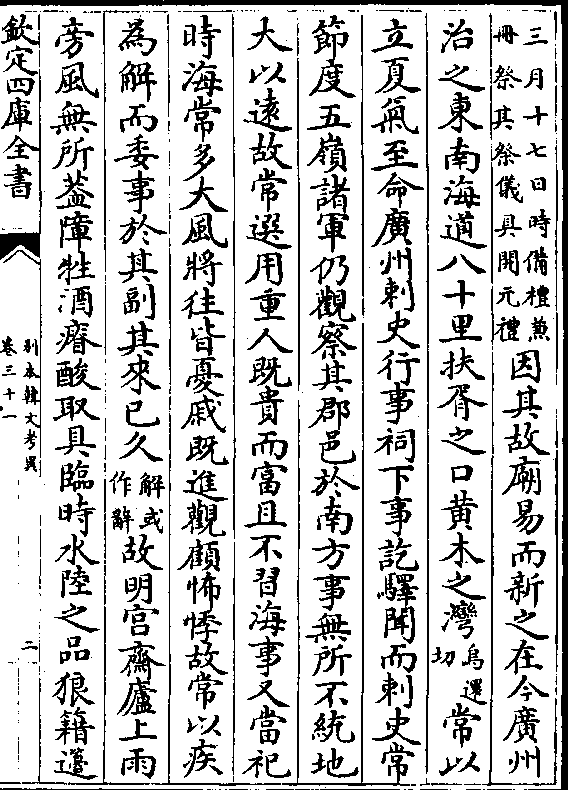 三月十七日時備禮兼
冊祭其祭儀具開元禮
因其故廟易而新之在今廣州
治之東南海道八十里扶胥之口黄木之灣
烏還
切
常以
立夏氣至命廣州刺史行事祠下事訖驛聞而刺史常
節度五嶺諸軍仍觀察其郡邑於南方事無所不統地
大以逺故常選用重人既貴而富且不習海事又當祀
時海常多大風將徃皆憂戚既進觀顧怖悸故常以疾
為解而委事於其副其來已久
解或
作辭
故明宫齋廬上雨
旁風無所葢障牲酒瘠酸取具臨時水陸之品狼籍籩
欽定四庫全書
别本韓文考異
卷三十一
二